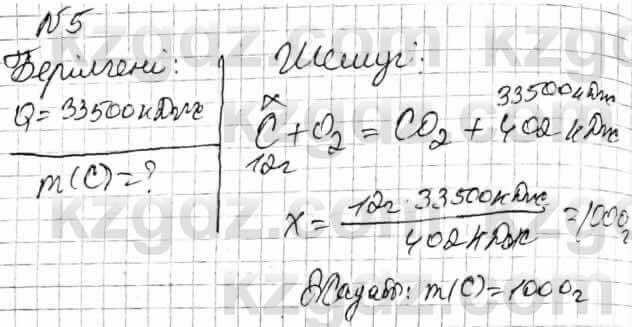 №5
Берілгені:
Q = 33500кДж
m(C) = ?
Шешуі:
x 33500кДж
C + O₂ = CO₂ + 402кДж
12г
x = 12г · 33500кДж / 402кДж = 1000г
Жауабы: m(C) = 1000г
kzgdz.com